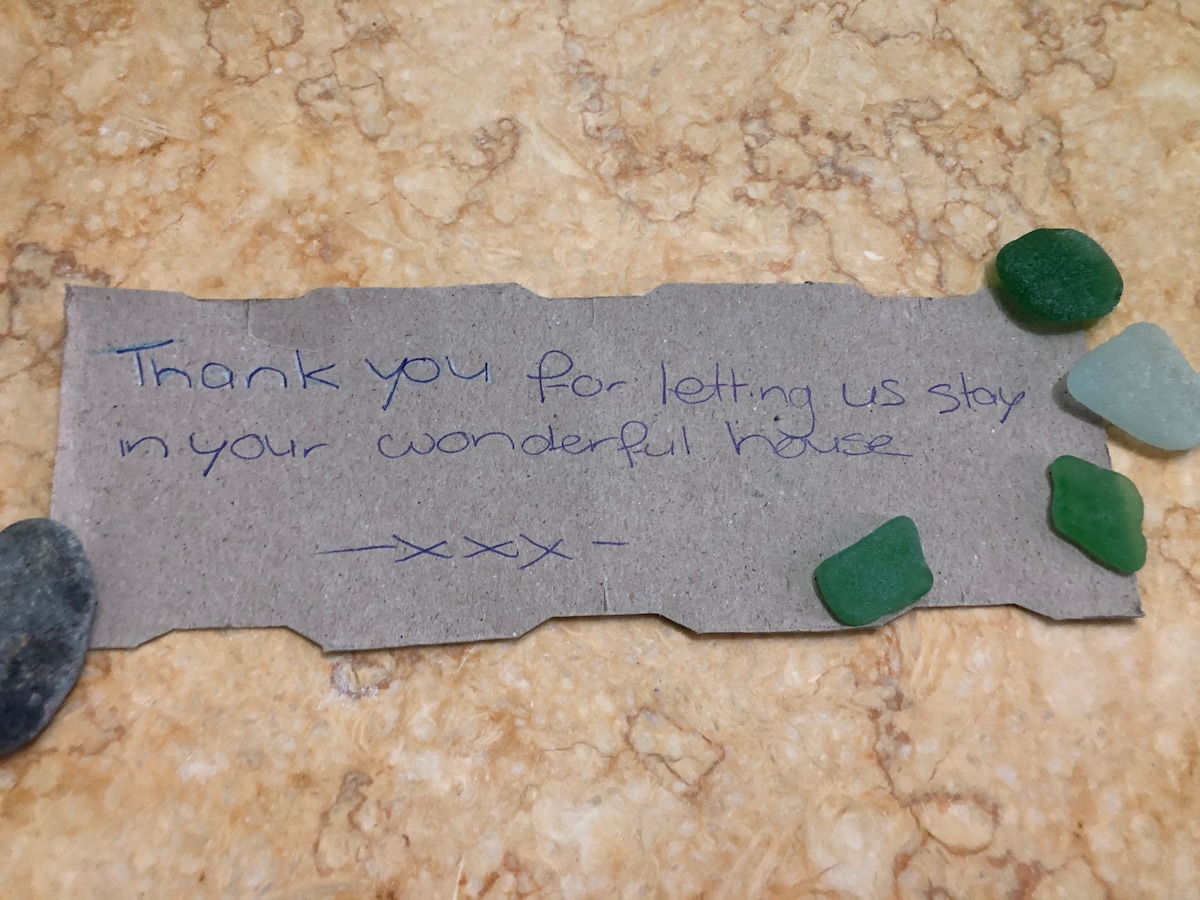 Thank you for letting us stay
in your wonderful house
—xxx–